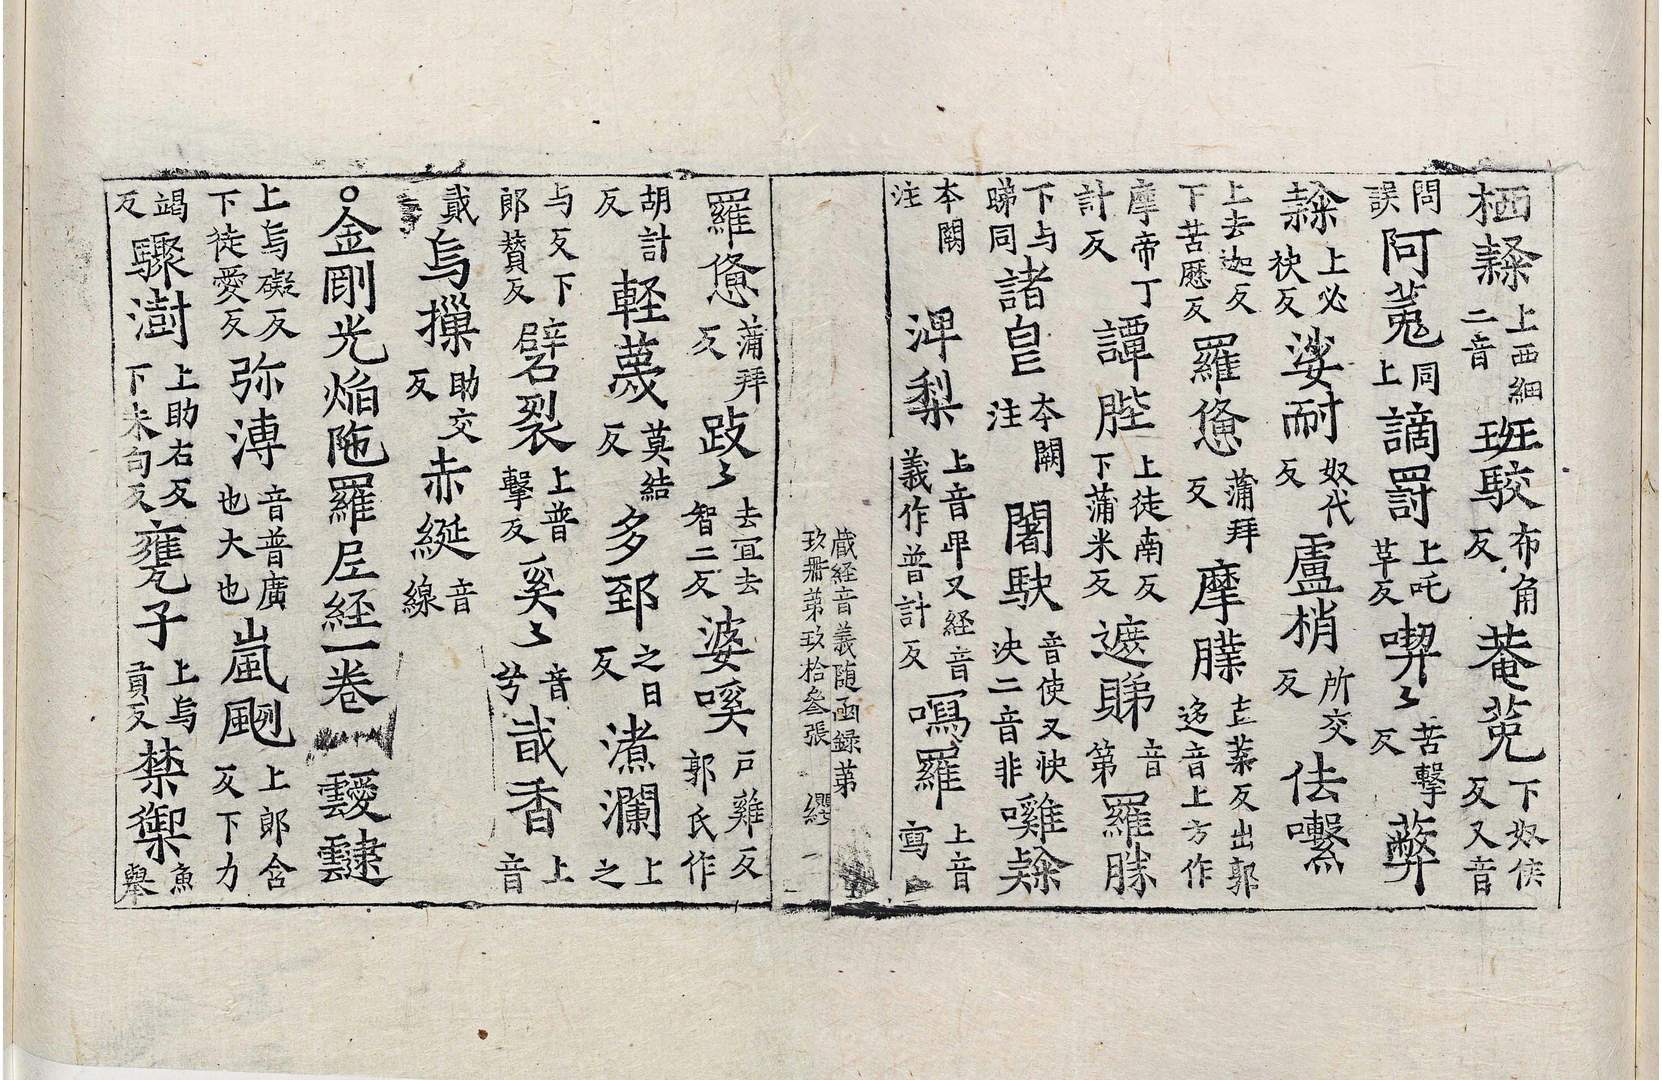 栖𨽻上西細二音班駮布角反菴菟下奴侯反又音
問誤阿䓘同上讁罸上吒革反喫〻苦擊反蔝
𨽻上必袂反娑耐奴代反盧梢所交反佉囉
上去迦反下苦歷反羅憊蒲拜反摩𦟛上䒳反出郭迻音上方作
摩帝丁計反譚䏶上徒南反下蒲米反遮睇音第羅𦟛
下与睇同諸皀本闕注闍駃音使又快決二音非囄𨽻
本闕注渒梨上音毗又經音義作普計反㗙羅上音寫
藏経音義随函録第
玖冊第玖拾叄張 纓
羅憊蒲拜反跂〻去宜去智二反婆嘆戶雞反郭氏作
胡計反輕蔑莫結反多郅之日反潗瀾上之
与反下郎贊反劈裂上普擊反奚〻音兮哉香上音
戴烏摷助交反赤綖音線
○金剛光焰陁羅尼経一卷靉靆
上烏礙反下徒愛反弥溥音普廣也大也嵐颲上郎含反下力
竭反驟澍上助右反下朱句反甕子上烏貢反禁禦魚舉